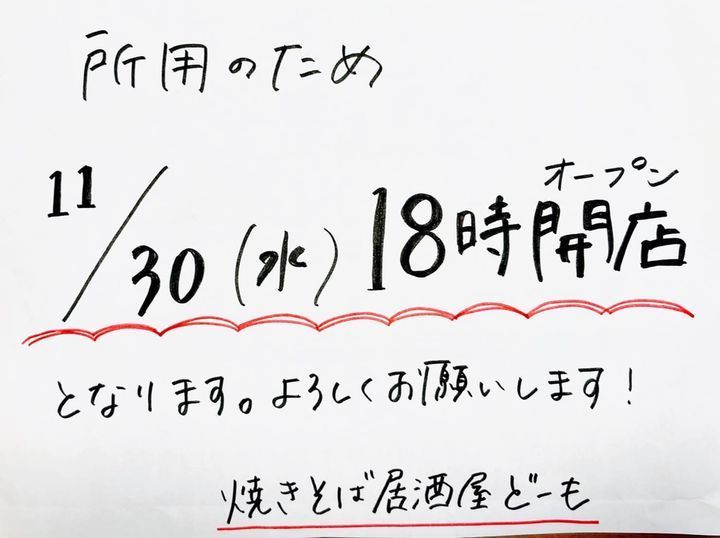 所用のため
オープン
11/30(水)18時開店
となります。よろしくお願いします!
焼きそば居酒屋どーも